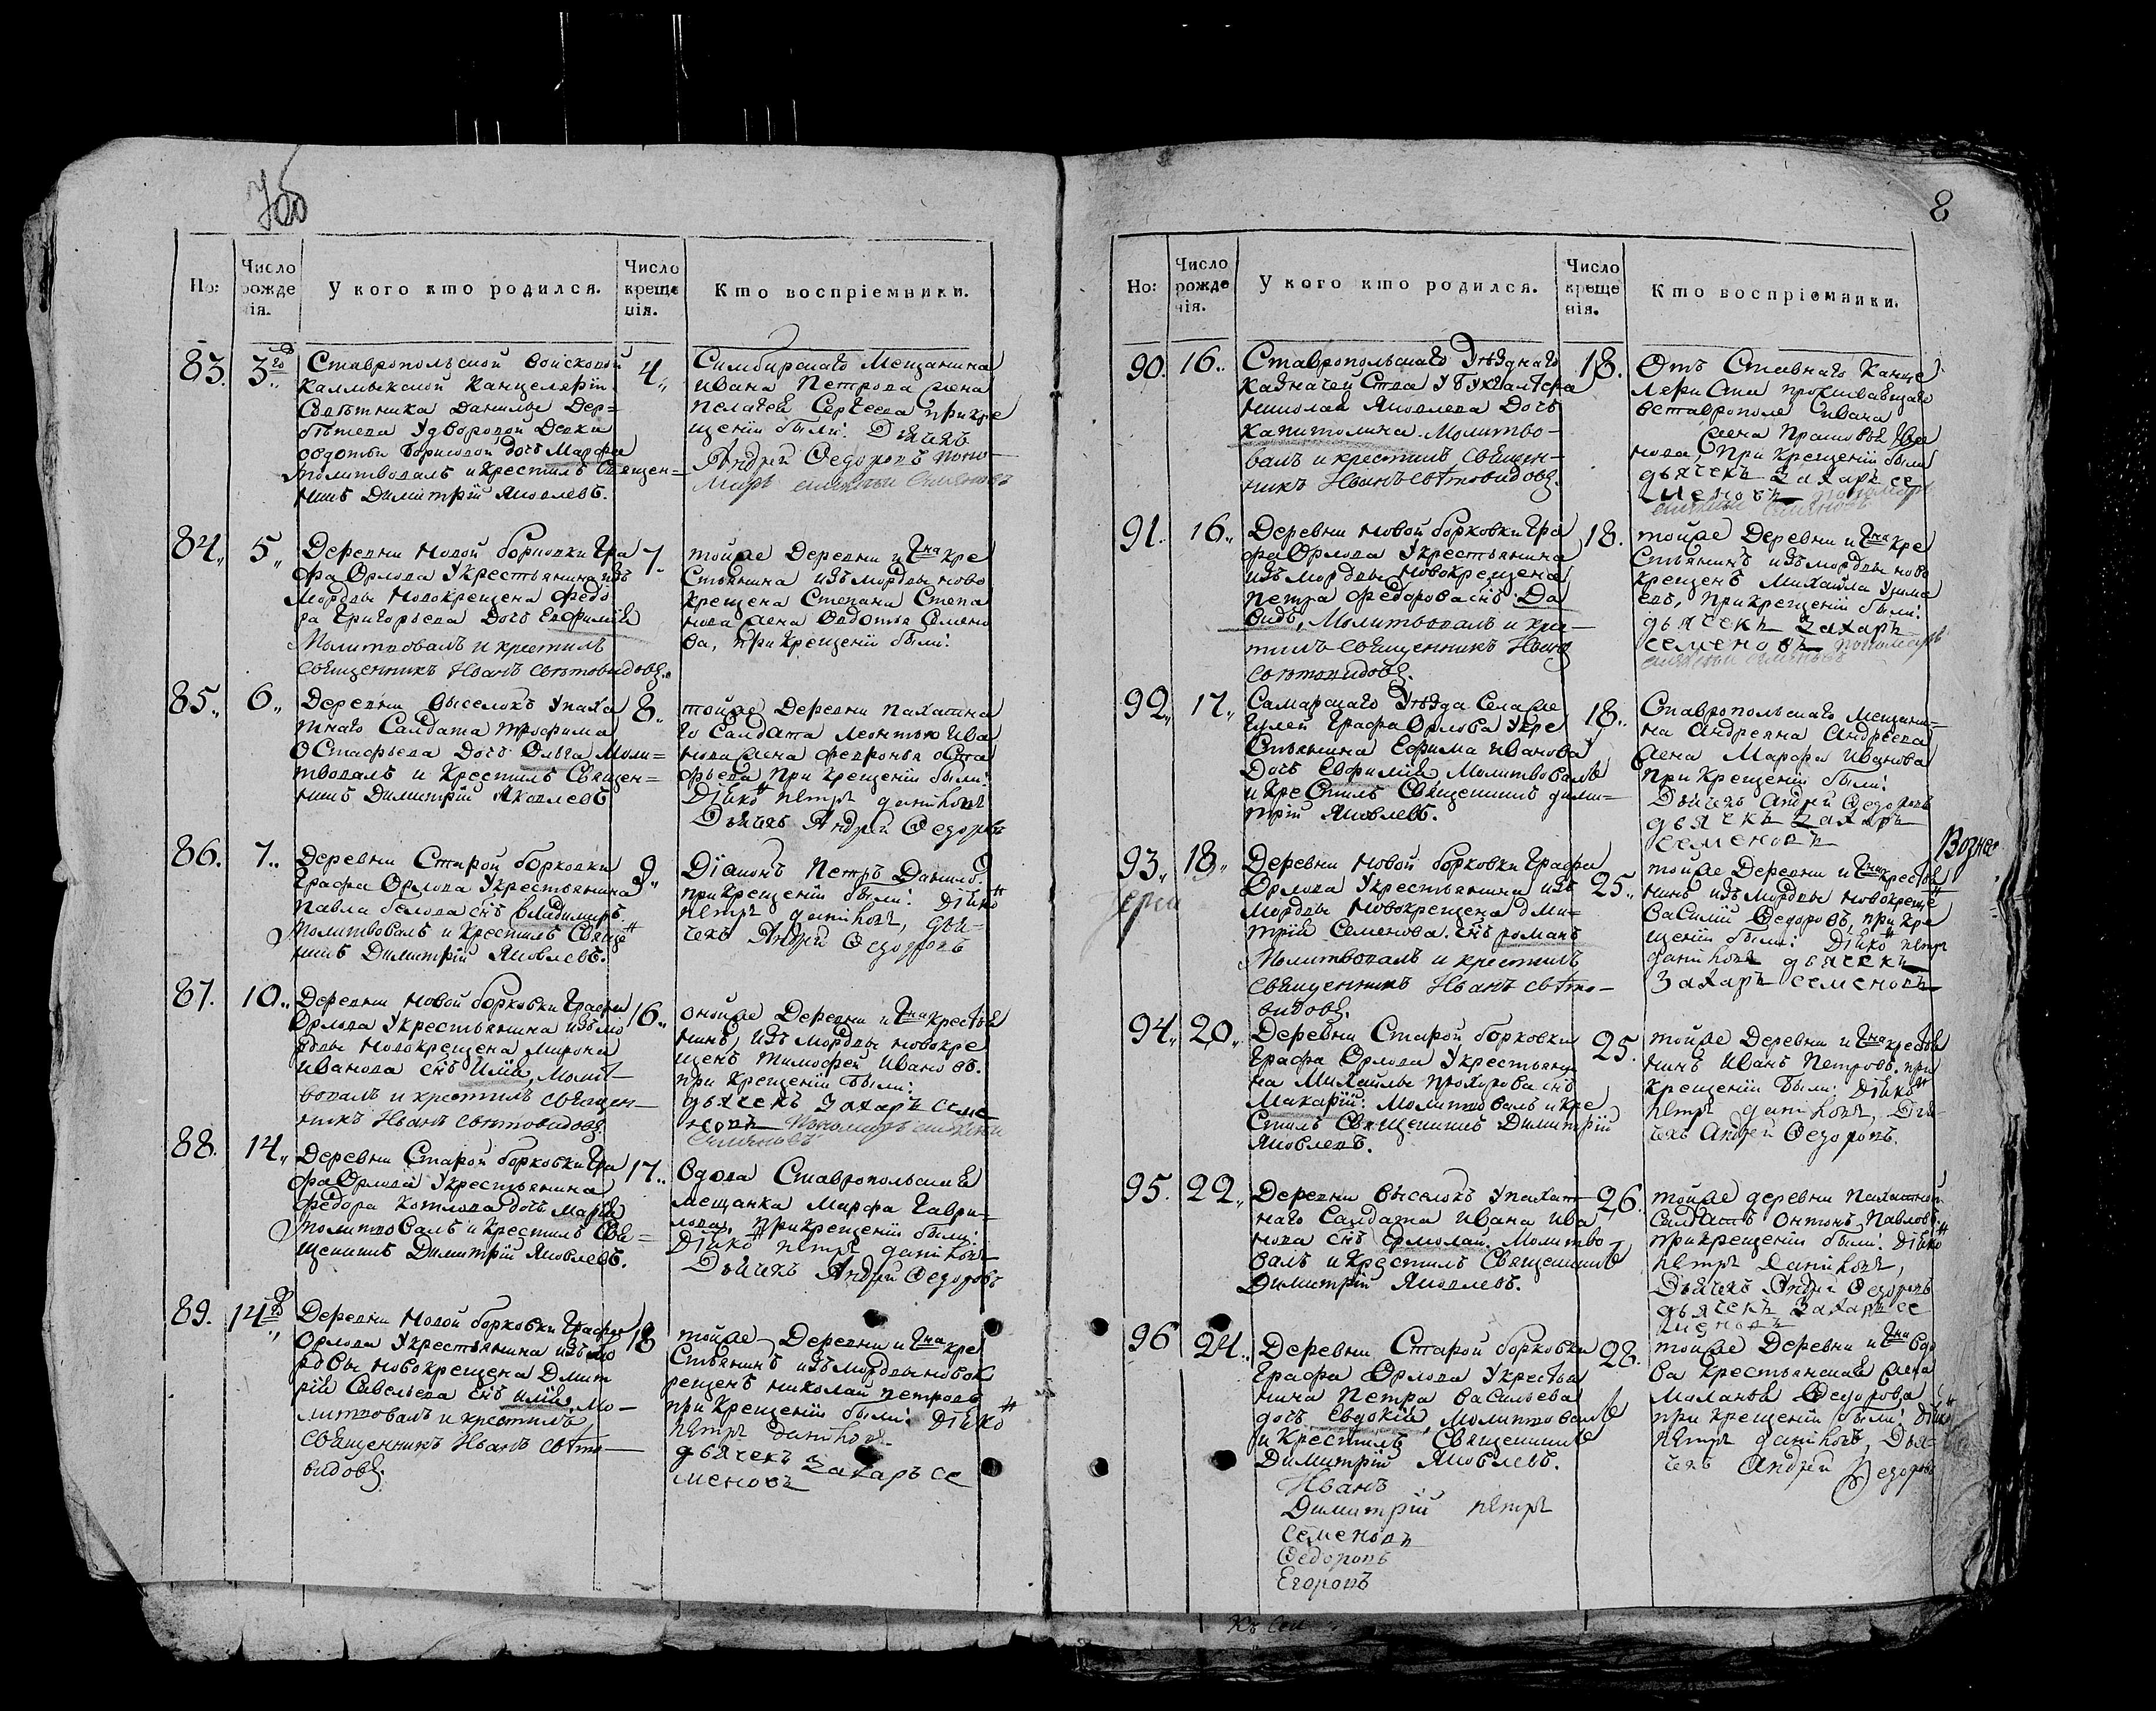 7об
Но:
Число рожденія.
У кого кто родился.
Число крещенія.
Кто воспріемники.
83.
3го
Ставропольской войсковой
калмыкской канцелярїи
Советника данилы Дер=
бѣтева У дворовой девки
овдотьи Борисовой дочь Марфа
молитвовалъ и крестилъ Священ=
никъ Димитрїй Яковлевъ.
4.
Симбирскаго Мещанина
ивана Петрова жена
пелагея Сергеева при кре
щенїи были: Дьячекъ
Андрей Ѳедоровъ поно-
марь
84.
5.
Деревни Новой борковки Гра
фа Орлова У крестьянина изъ
мордвы новокрещена федо
ра Григорьева Дочь Евфимїя
Молитвовалъ и крестилъ
священникъ Иванъ Свѣтовидовъ.
7.
тойже Деревни и Гна кре
стьянина изъ мордвы ново
крещена Степана Степа
нова жена Овдотья Семено
ва, при крещенїи были:
85.
6.
Деревни выселокъ У паха
тнаго Салдата трофима
остафьева Дочь Ольга Моли=
твовалъ и Крестилъ Священ=
никъ Димитрїй Яковлевъ
8.
тойже Деревни пахатна
го Салдата Леонтья Ива
нова жена федронья оста
фьева при крещенїи были:
Дїяко петръ данїловъ
Дьячекъ Андрей Ѳедоровъ
86.
7.
Деревни Старой борковки
Графа Орлова У крестьянина
Павла белова снъ владимиръ.
Молитвовалъ и Крестилъ Свяще
никъ Димитрїй Яковлевъ.
9.
Дїаконъ Петръ Данило
при крещенїи были: Дїяко
петръ данїловъ, дья-
чекъ Андрей Ѳедоровъ
87.
10.
Деревни Новой борковки Графа
Орлова У крестьянина изъ мо
рдвы новокрещена Мирона
иванова снъ Илїя, Молит-
вовалъ и крестилъ священ-
никъ Иванъ Свѣтовидовъ.
16.
онойже Деревни и Гна крестья
нинъ, изъ мордвы новокре
щенъ тимофей Ивановъ.
при крещенїи были:
дьячекъ Захаръ семе
новъ
88.
14.
Деревни Старой борковки Гра
фа Орлова У крестьянина
федора котлова дочь Марїя
Молитвовалъ и Крестилъ Свя=
щенникъ Димитрїй Яковлевъ.
17.
вдова Ставропольская
мещанка Марфа Гаври-
лова, при крещенїи были:
Дїяко петръ данїловъ
Дьячекъ Андрей Ѳедоровъ
89.
14
Деревни Новой борковки Графа
Орлова У крестьянина изъ мо
рдвы новокрещена Дмит
рїя Савельева снъ илїя, Мо-
литвовалъ и крестилъ
священникъ Иванъ Свѣто-
видовъ.
18
тойже Деревни и Гна кре
стьянинъ изъ мордвы новок
рещенъ николай петровъ
при крещенїи были: Дїяко
петръ данїловъ
дьячекъ Захаръ се
меновъ
8
Но:
Число рожденія.
У кого кто родился.
Число крещенія.
Кто воспріемники.
90.
16.
Ставропольскаго Уѣзднаго
казначейства У бухгалтера
николая Яковлева Дочь
капитолина. Молитво-
валъ и крестилъ священ-
никъ Иванъ Свѣтовидовъ.
18.
Отъ Ставнаго Канце
ляриста проживающаго
вставрополе ивана
жена Прасковья Ива
нова, При крещенїи были
дьячекъ Захаръ се
меновъ пономарь
91.
16.
Деревни новой борковки Гра
фа Орлова У крестьянина
изъ мордвы новокрещена
петра федорова снъ Да
видъ, Молитвовалъ и кре-
тилъ священникъ Иванъ
Свѣтовидовъ.
18.
тойже Деревни и Гна кре
стьянинъ изъ мордвы ново
крещенъ Михайла
при крещенїи были:
дьячекъ Захаръ
семеновъ пономарь
92.
17.
Самарскаго Уѣзда Села же
гулей Графа Орлова У кре
стьянина Ефима Иванова
Дочь Евфимїя, Молитвовалъ
и крестилъ Священникъ дими=
трїй Яковлевъ.
18.
Ставропольскаго Мещани=
на Андреяна Андреева
жена Марфа Иванова
при крещенїи были:
Дьячекъ Андрей Ѳедоровъ
дьячекъ Захаръ
семеновъ
93.
18.
Деревни новой борковки Графа
Орлова У крестьянина изъ
мордвы новокрещена дми-
трїя Семенова. снъ романъ
Молитвовалъ и крестилъ
священникъ Иванъ Свѣто-
видовъ.
25.
тойже Деревни и Гна крестья
нинъ изъ мордвы новокреще
василїй Ѳедоровъ, при кре
щенїи были: Дїяко петръ
данїловъ дьячекъ
Захаръ семеновъ
94.
20.
Деревни Старой борковки
Графа Орлова У крестьяни
на Михайлы прохорова снъ
Макарїй: Молитвовалъ и кре
стилъ Священникъ Димитрїй
Яковлевъ.
25.
тойже Деревни и Гна крестья
нинъ Иванъ Петровъ. при
крещенїи были: Дїяко
петръ данїловъ, Дья-
чекъ Андрей Ѳедоровъ.
95.
22.
Деревни выселокъ У пахат
наго Салдата ивана ива
нова снъ Ермолай, Молитво
валъ и Крестилъ Священникъ
Димитрїй Яковлевъ.
26.
тойже деревни пахатной
Салдатъ онтонъ Павловъ
при крещенїи были: Дїяко
петръ данїловъ,
Дьячекъ Андрей Ѳедоровъ
дьячекъ Захаръ се
меновъ
96
24.
Деревни Старой борковки
Графа Орлова У крестья
нина Петра васильева
дочь Евдокїя, молитвовалъ
и Крестилъ Священникъ
Димитрїй Яковлевъ.
28.
тойже Деревни и Гна вдо
ва крестьянская жена
Маланья Ѳедорова
при крещенїи были: Дїяко
петръ данїловъ, Дья-
чекъ Андрей Ѳедоровъ
Иванъ
Димитрїй петръ
семеновъ
Ѳедоровъ
Егоровъ